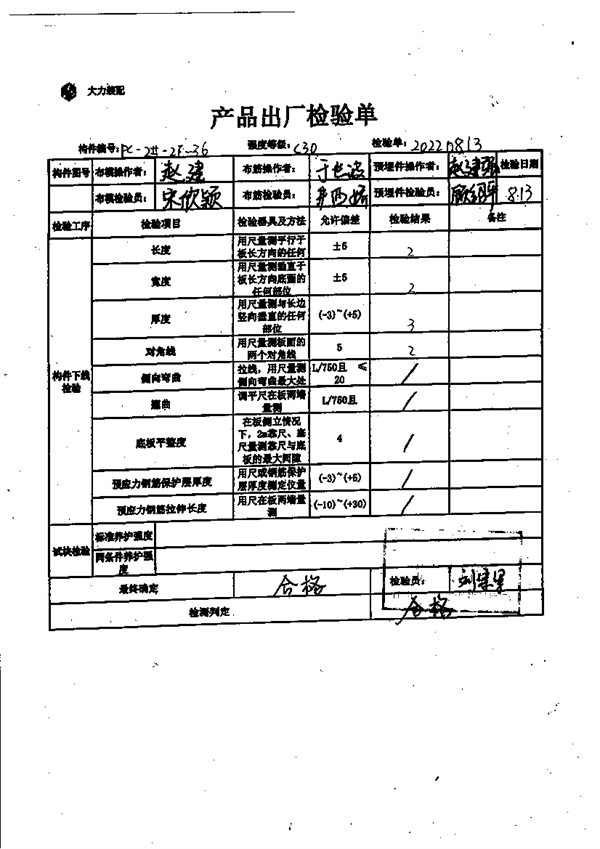 大力装配
产品出厂检验单
构件编号：PC-2#-2F-36 强度等级：C30 检验单：20220813
构件图号 布模操作者：赵建 布筋操作者： 预埋件操作者： 检验日期
布模检验员：宋欣颖 布筋检验员： 预埋件检验员： 8.13
检验工序 检验项目 检验器具及方法 允许偏差 检验结果 备注
构件下线检验
长度 用尺量测平行于板长方向的任何 ±5 2
宽度 用尺量测垂直于板长方向底面的任何部位 ±5 2
厚度 用尺量测与长边竖向垂直的任何部位 (-3)~(+5) 3
对角线 用尺量测板面的两个对角线 5 2
侧向弯曲 拉线，用尺量测侧向弯曲最大处 L/750且 ≤20 /
翘曲 调平尺在板两端量测 L/750且 /
底板平整度 在板侧立情况下，2m靠尺、塞尺量测靠尺与底板的最大间隙 4 /
预应力钢筋保护层厚度 用尺或钢筋保护层厚度测定仪量 (-3)~(+5) /
预应力钢筋拉伸长度 用尺在板两端量测 (-10)~(+30) /
试块检验 标准养护强度
同条件养护强度
最终确定 合格 检验员：
检测判定 合格